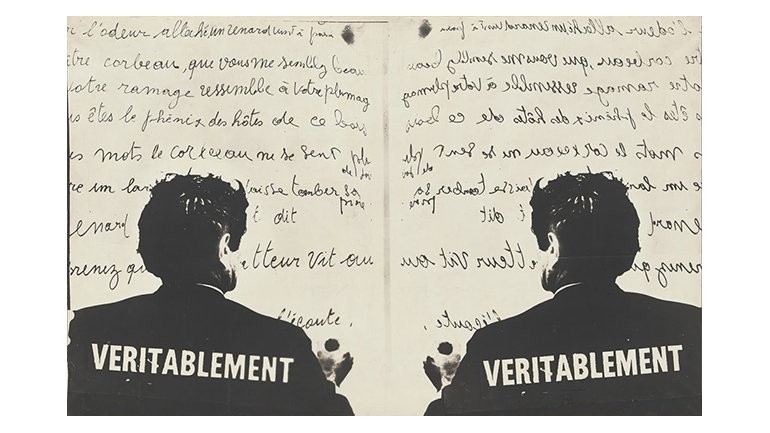 l'odeur allaché un renard vint à
tre corbeau, que vous me semblez beau
votre ramage ressemble à votre plumag
us êtes le phénix des hôtes de ce bois
s mots le corbeau ne se sent plu
de joi
re un lar laisse tomber sa
proie
enard é dit
renez qu tteur vit au
l'écoute,
VERITABLEMENT VERITABLEMENT